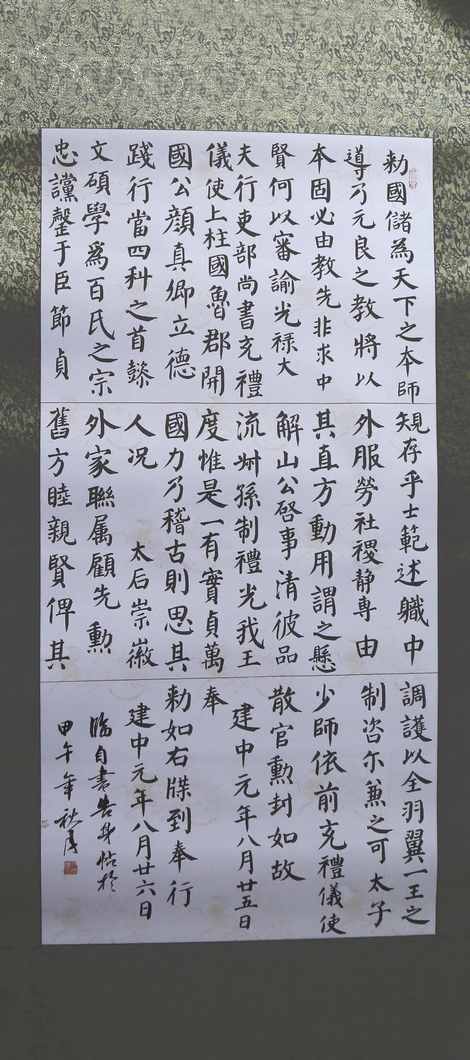 勅國儲為天下之本師
導乃元良之教將以
本固必由教先非求中
賢何以審諭光祿大
夫行吏部尚書充禮
儀使上柱國魯郡開
國公顏真卿立德
踐行當四科之首懿
文碩學為百氏之宗
忠讜罄于臣節貞
規存乎士範述職中
外服勞社稷静専由
其直方動用謂之懸
解山公啓事清彼品
流叔孫制禮光我王
度惟是一有實貞萬
國力乃稽古則思其
人况 太后崇徽
外家聯属顧先勲
舊方睦親賢俾其
調護以全羽翼一王之
制咨尔兼之可太子
少師依前充禮儀使
散官勲封如故
建中元年八月廿五日
奉
勅如右牒到奉行
建中元年八月廿六日
臨自書告身帖於
甲午年秋月